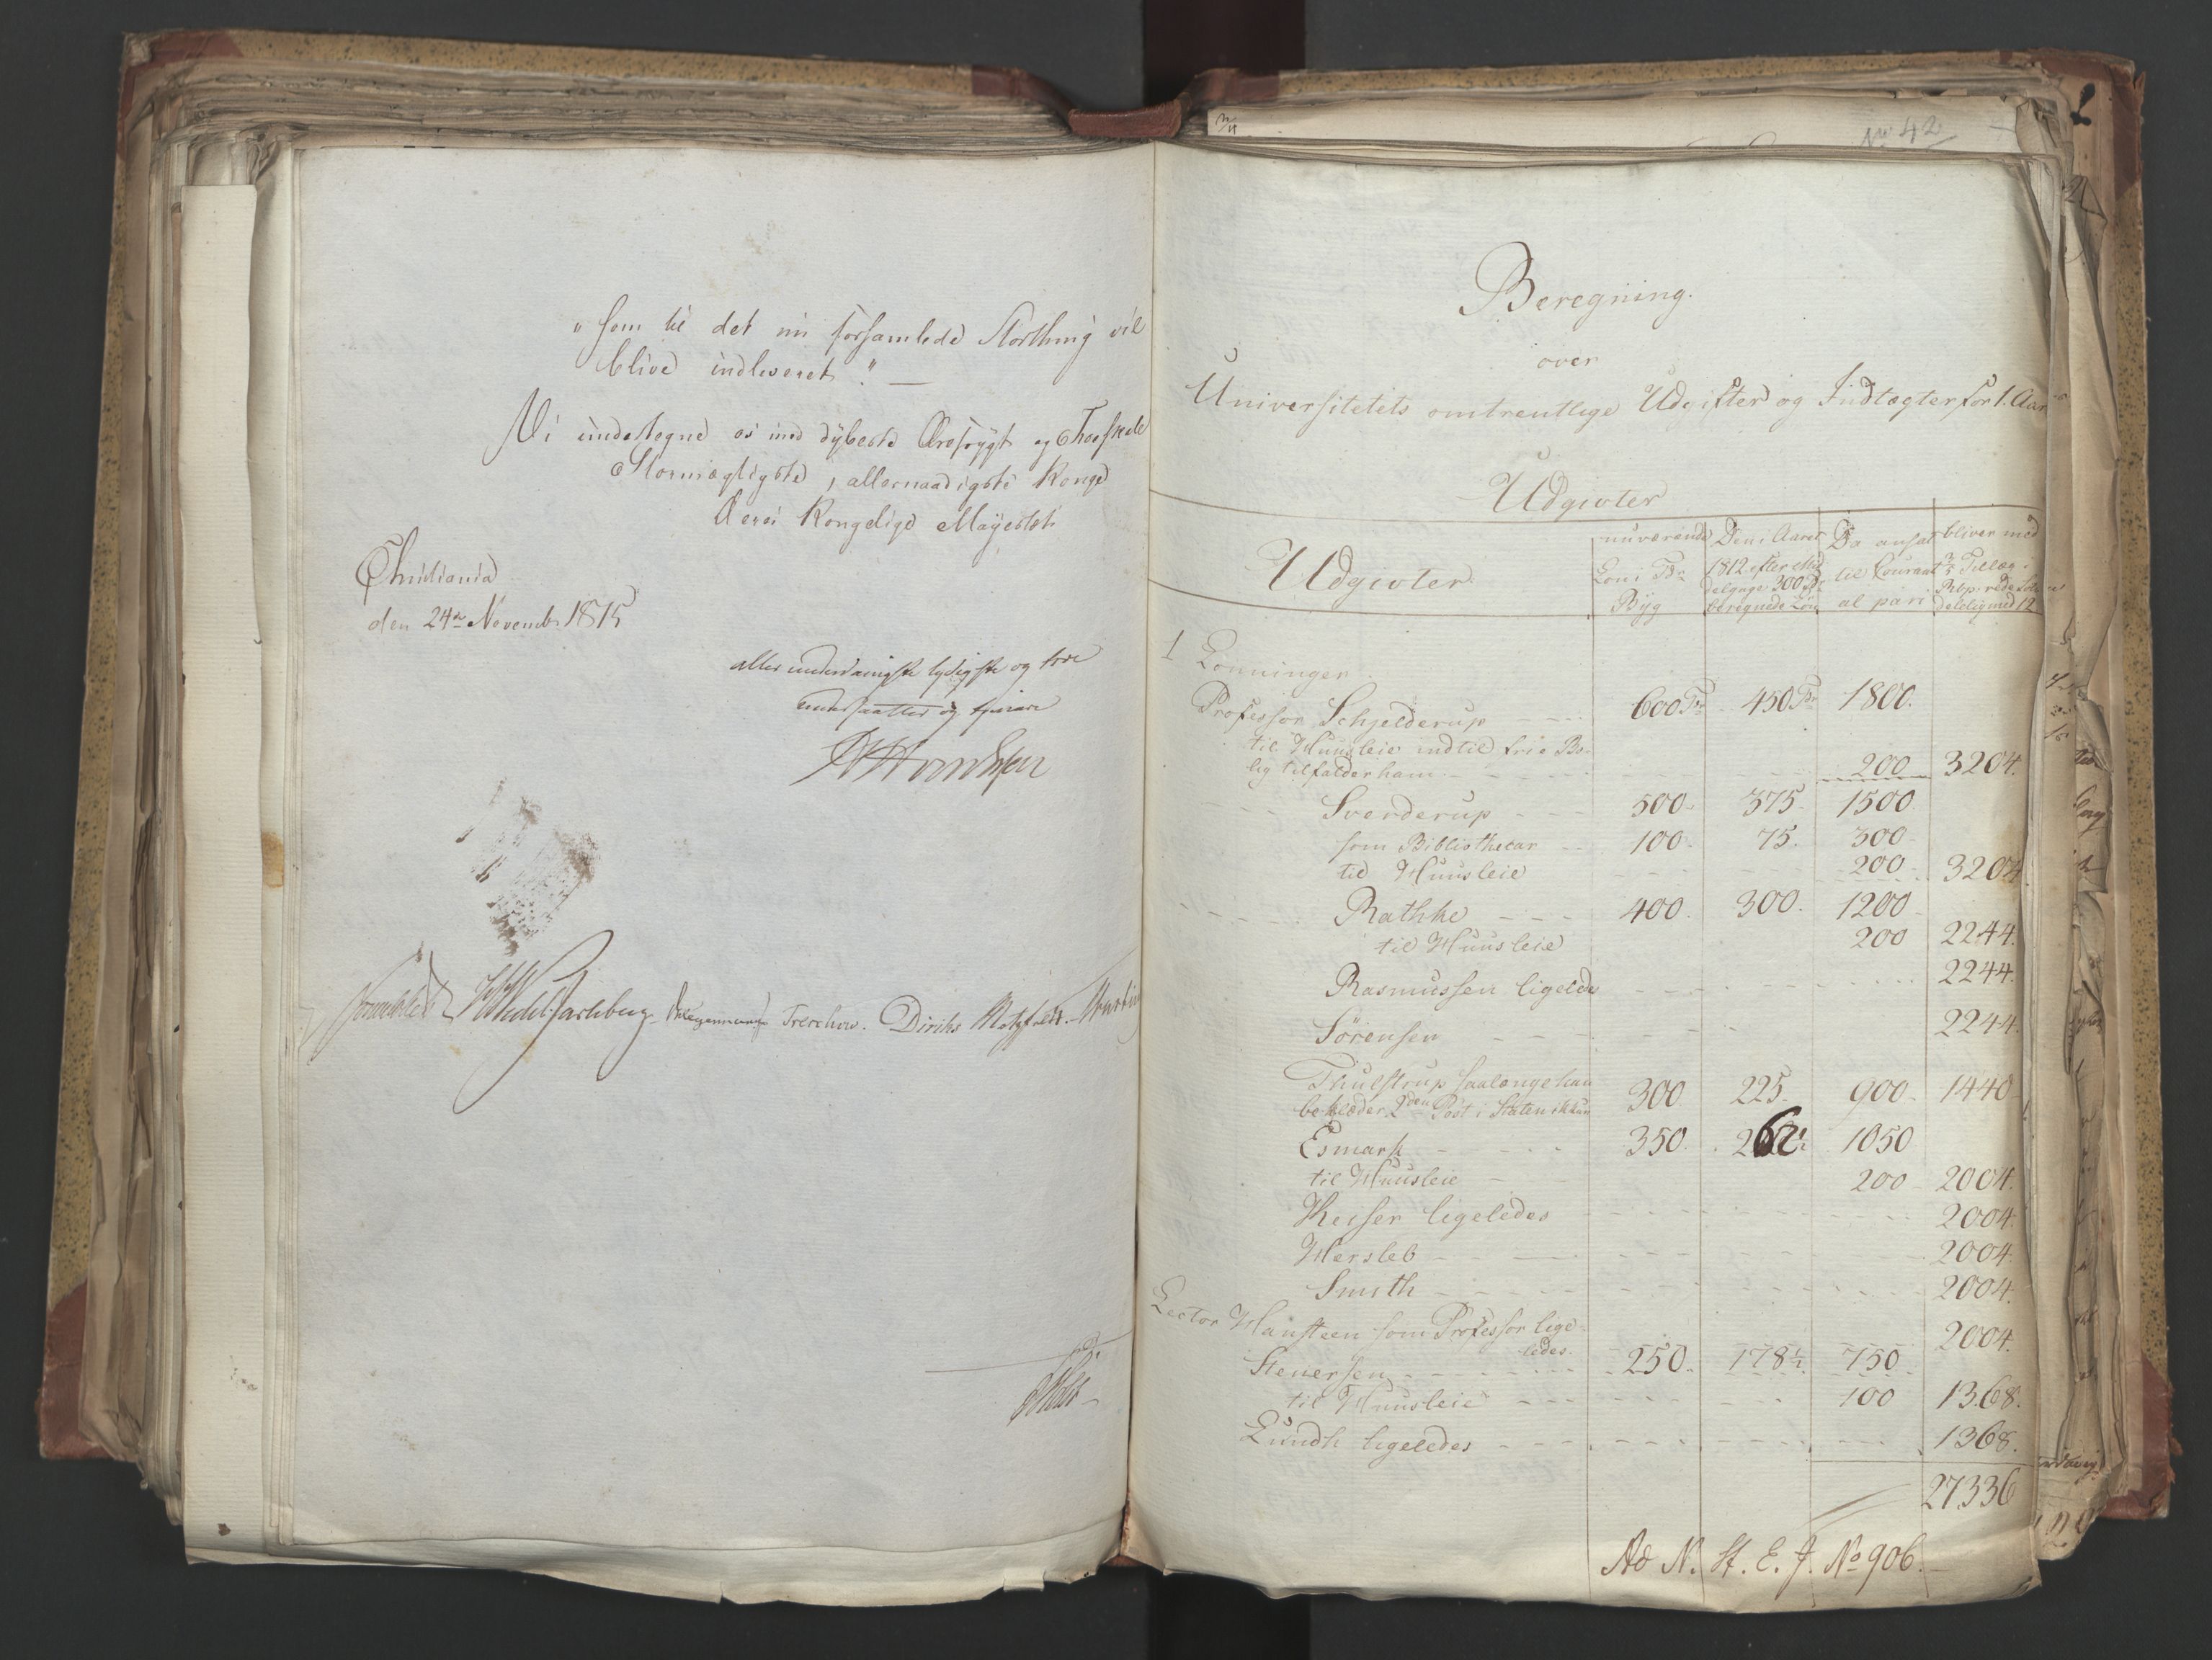 "som til det nu forsamlede Storthing vil
blive indleveret." —
Vi undertegne os med dybeste Ærefrygt og Troeskab
Stormægtigste, allernaadigste Konge
Deres Kongelige Majestæts
Christiania
den 24de Novembr 1815
allerunderdanigste lydigste og troe
undersaatter og tjenere
Sommerhielm HWedel Jarlsberg Hegermann Treschow. Diriks Motzfeldt.
No 42
Beregning.
over
Universitetets omtrentlige Udgifter og Indtægter for 1. Aar
Udgivter
Udgivter. nuværende Løn i Tdr Byg Den i Aaret 1812 efter Middelpriis 300 Tdr beregnede Løn Da ansat til Courant al pari bliver med
1 Lønninger.
Professor Schjelderup - - - 600 Tdr 450 Tdr 1800.
til Huusleie indtil frie Bo-
lig tilfalder ham. - - - 200 3204.
Sverderup - - - 500. 375. 1500.
som Bibliothecar - - 100. 75. 300
til Huusleie 200 3204.
Rathke - - - 400. 300. 1200
til Huusleie 200 2244.
Rasmussen ligeledes 2244.
Sörensen - - - 2244.
Thulstrup saalænge han
beklæder 2den Post i Staten ikkun 300 225. 900. 1440
Esmark - - - 350. 262½ 1050
til Huusleie - 200 2004.
Keiser ligeledes 2004.
Hersleb - - - 2004.
Smith - - - 2004.
Lector Hansteen som Professor lige-
ledes. 2004.
Stenersen - - - 250. 178½ 750.
til Huusleie - - - 100 1368.
Lundh ligeledes - - - 1368.
27336
Ad N. St. E. J. No 906.